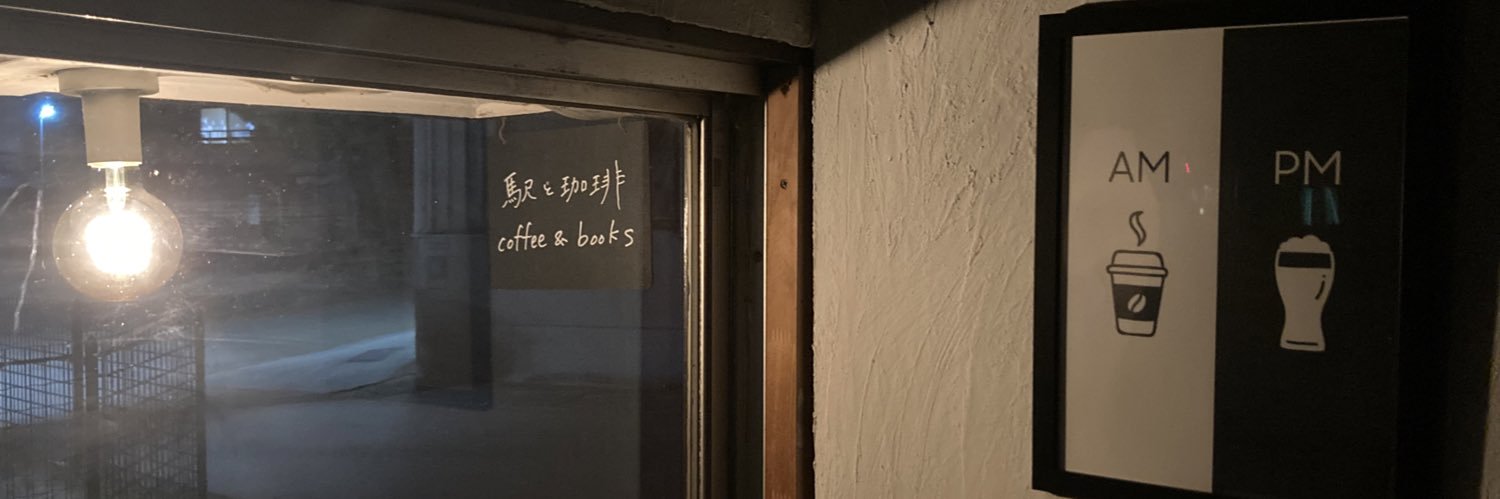 駅と珈琲
coffee & books
AM
PM